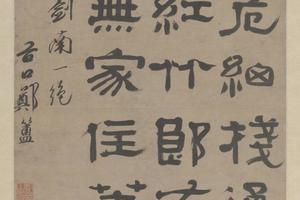 危細棧
紅竹郎
無家住
劍南一絕
谷口鄭簠